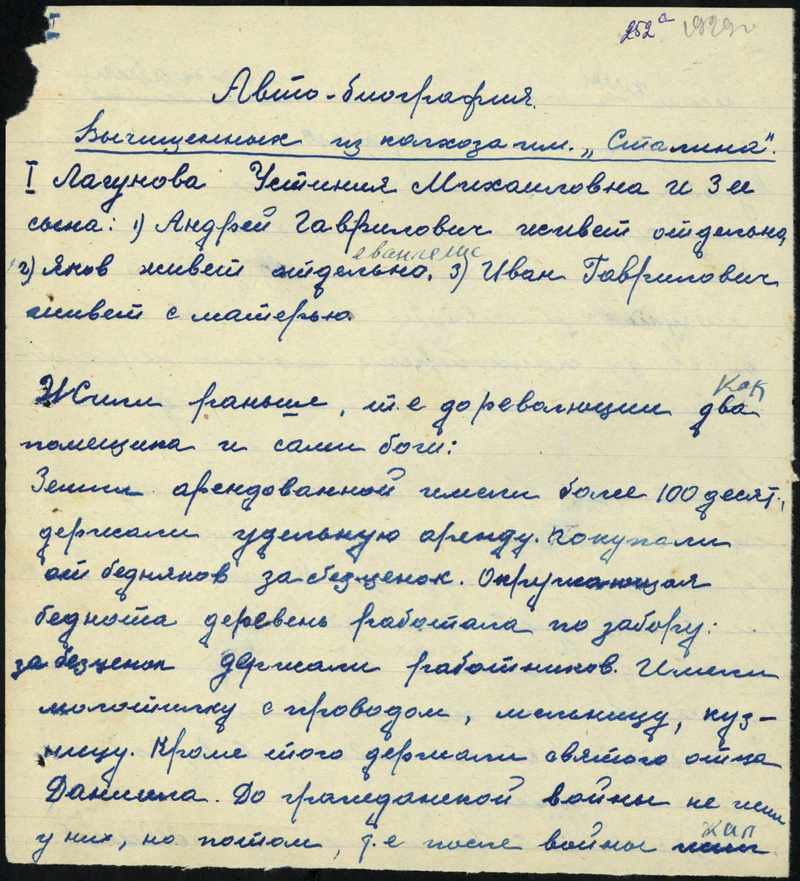 252а 1929г
Авто-биография.
Вычищенных из колхоза им. „Сталина".
I Лагунова Устиния Михаиловна и 3 ее
сына: 1) Андрей Гаврилович живет отдельно,
евангелис
2) Яков живет отдельно, 3) Иван Гаврилович
живет с матерью.
Как
Жили раньше, т.е до революции два
помещика и сами боги:
Земли арендованной имели более 100 десят.,
держали удельную аренду. Покупали
от бедняков за безценок. Окружающая
беднота деревень работала по забору:
за безценок держали работников. Имели
молотилку с проводом, мельницу, куз-
ницу. Кроме того держали святого отца
Даниила. До гражданской войны не жил
жил
у них, но потом, т.е после войны